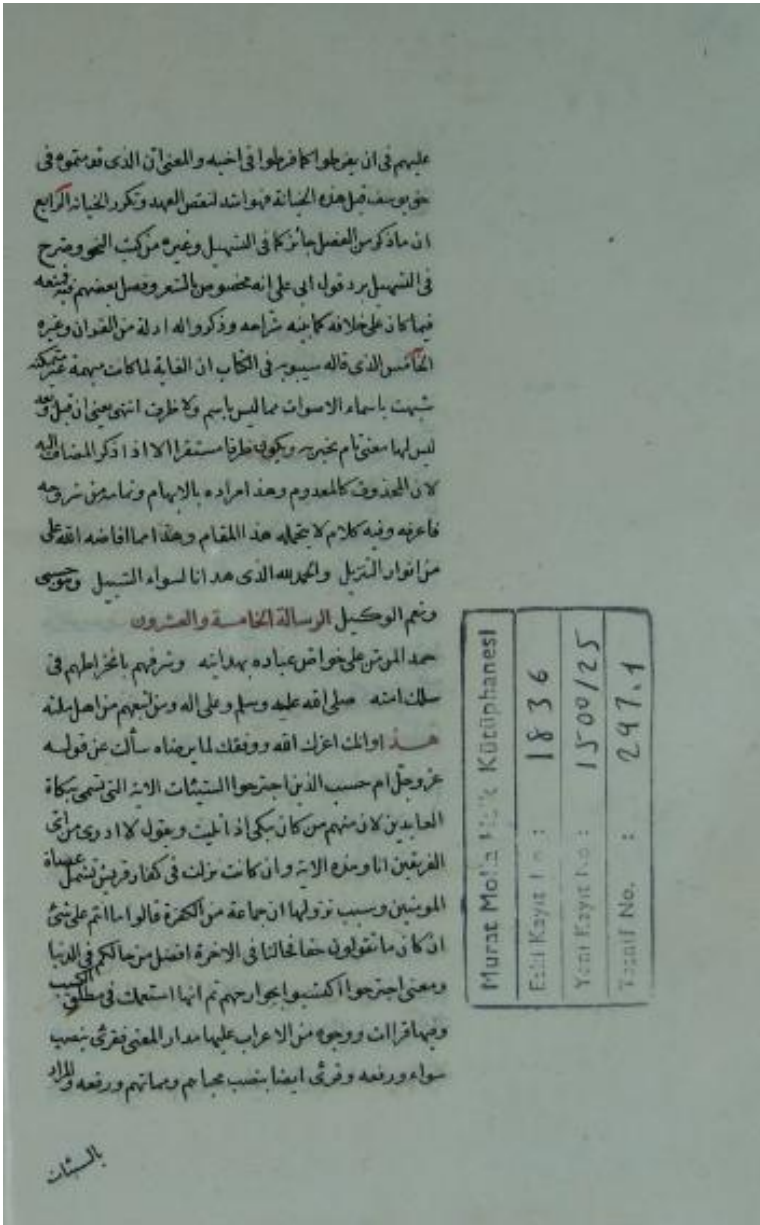 عليهم في ان يفرطوا كما فرطوا في اخيه والمعنى ان الذى قدمتموه في
حق يوسف قبل هذه الخيانة فهو اشد لنقض العهد وتكرر الخيانة الرابع
ان ماذكر من الفصل جائز كما في التسهيل وغيره من كتب النحو وصرح
في التسهيل برد قول ابى على انه مخصوص بالشعر وفصل بعضهم فيه فمنعه
فيما كان على خلافه كما بينه شراحه وذكروا له ادلة من القران وغيره
الخامس الذى قاله سيبويه في الكتاب ان الغاية لما كانت مبهمة غير متمكنه
شبهت باسماء الاصوات مما ليس باسم ولا ظرف انتهى يعنى ان قبل وبعد
ليس لها معنى تام يخبر به ويكون ظرفا مستقرا الا اذا ذكر المضاف اليه
لان المحذوف كالمعدوم وهذا مراده بالابهام وتمامه من شروحه
فاعرفه وفيه كلام لا يتحمله هذا المقام وهذا مما افاضه الله على
من انوار التنزيل والحمد لله الذى هدانا لسواء السبيل وهو حسبى
ونعم الوكيل الرسالة الخامسة والعشرون
حمد المو من على خواص عباده بهدايته وشرفهم بانخراطهم في
سلك امته صلى الله عليه وسلم وعلى اله ومن تبعهم من اهل ملته
هذا وانك اعزك الله ووفقك لما يرضاه سألت عن قوله
عز وجل ام حسب الذين اجترحوا السيئات الاية التى تسمى مبكاة
العابدين لان منهم من كان يبكى اذا تليت ويقول لا ادرى من اى
الفريقين انا وهذه الاية وان كانت نزلت في كفار قريش تشمل عصاة
المومنين وسبب نزولها ان جماعة من الكفرة قالوا ما انتم على شئ
ان كان ما تقولون حقا فحالنا في الاخرة افضل من حالكم في الدنيا
ومعنى اجترحوا اكتسبوا بجوارحهم ثم انها استعملت في مطلق الكسب
وفيها قراات ووجوه من الاعراب عليها مدار المعنى فقرئ بنصب
سواء ورفعه وقرئ ايضا بنصب محياهم ومماتهم ورفعه والمراد
بالسيئات
Murat Molla Halk Kütüphanesi
Eski Kayıt No: 1836
Yeni Kayıt No: 1500/25
Tasnif No. : 297.1